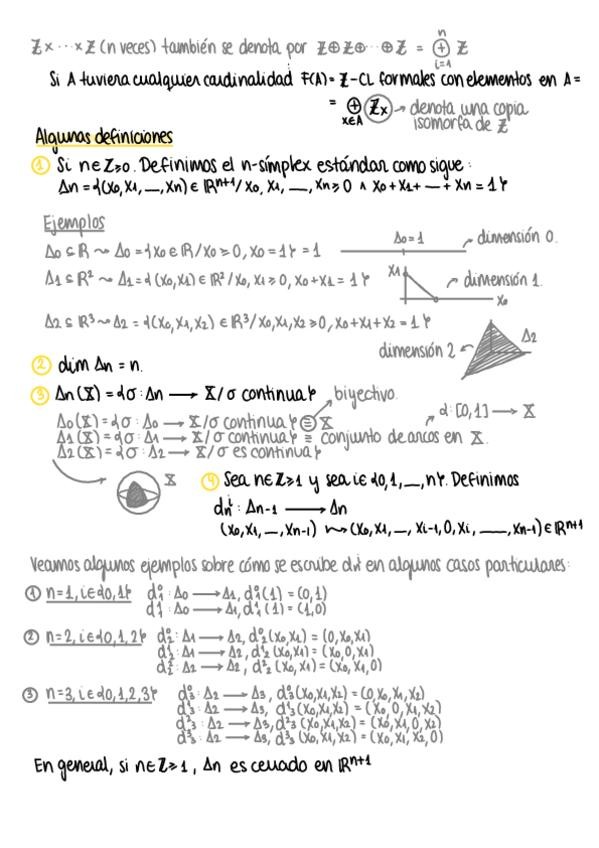 ℤ×···×ℤ (n veces) también se denota por ℤ⊕ℤ⊕···⊕ℤ = ⊕ᵢ₌₁ⁿ ℤ
Si A tuviera cualquier cardinalidad F(A) = ℤ-CL formales con elementos en A =
= ⊕ₓ∈A ℤx → denota una copia
isomorfa de ℤ
Algunas definiciones
① Si n∈ℤ≥0. Definimos el n-símplex estándar como sigue:
Δn = {(x0, x1, __, xn) ∈ ℝⁿ⁺¹/ x0, x1, __, xn ≥ 0 ∧ x0+x1+ — + xn = 1}
Ejemplos
Δ0 ⊆ ℝ ⇝ Δ0 = {x0 ∈ ℝ/x0 ≥ 0, x0 = 1} = 1 Δ0=1 dimensión 0.
Δ1 ⊆ ℝ² ⇝ Δ1 = {(x0,x1) ∈ ℝ²/x0, x1 ≥ 0, x0+x1 = 1} x1 x0 dimensión 1.
Δ2 ⊆ ℝ³ ⇝ Δ2 = {(x0,x1,x2) ∈ ℝ³/x0,x1,x2 ≥ 0, x0+x1+x2 = 1}
dimensión 2 Δ2
② dim Δn = n.
③ Δn(X) = {σ : Δn → X/σ continua} biyectivo.
Δ0(X) = {σ : Δ0 → X/σ continua} ≡ X α: [0,1] → X
Δ1(X) = {σ : Δ1 → X/σ continua} ≡ conjunto de arcos en X.
Δ2(X) = {σ : Δ2 → X/σ es continua}
X
④ Sea n∈ℤ≥1 y sea i∈{0,1,__,n}. Definimos
dₙⁱ : Δn-1 → Δn
(x0, x1, __, xn-1) ⇝ (x0, x1, __, xi-1, 0, xi, __, xn-1) ∈ ℝⁿ⁺¹
Veamos algunos ejemplos sobre cómo se escribe dₙⁱ en algunos casos particulares:
① n=1, i∈{0,1} d₁⁰ : Δ0 → Δ1, d₁⁰(1) = (0,1)
d₁¹ : Δ0 → Δ1, d₁¹(1) = (1,0)
② n=2, i∈{0,1,2} d₂⁰ : Δ1 → Δ2, d₂⁰(x0,x1) = (0,x0,x1)
d₂¹ : Δ1 → Δ2, d₂¹(x0,x1) = (x0,0,x1)
d₂² : Δ2 → Δ2, d₂²(x0,x1) = (x0,x1,0)
③ n=3, i∈{0,1,2,3} d₃⁰ : Δ2 → Δ3, d₃⁰(x0,x1,x2) = (0,x0,x1,x2)
d₃¹ : Δ2 → Δ3, d₃¹(x0,x1,x2) = (x0,0,x1,x2)
d₃² : Δ2 → Δ3, d₃²(x0,x1,x2) = (x0,x1,0,x2)
d₃³ : Δ2 → Δ3, d₃³(x0,x1,x2) = (x0,x1,x2,0)
En general, si n∈ℤ≥1, Δn es cerrado en ℝⁿ⁺¹